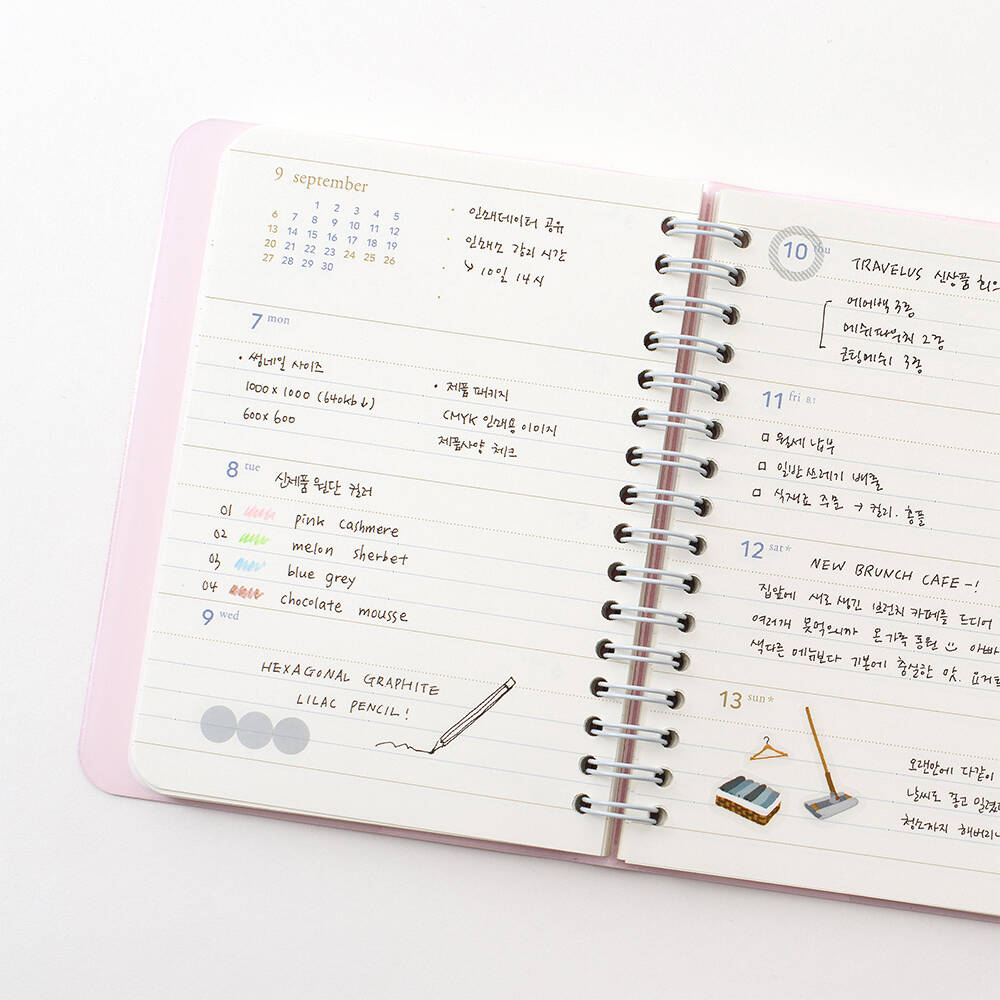 9 september
1 2 3 4 5
6 7 8 9 10 11 12
13 14 15 16 17 18 19
20 21 22 23 24 25 26
27 28 29 30
· 인쇄데이터 공유
· 인쇄소 감리 시간
↳ 10일 14시
7 mon
• 썸네일 사이즈
1000 x 1000 (640kb↓)
600 x 600
• 제품 패키지
CMYK 인쇄용 이미지
제품사양 체크
8 tue
신제품 원단 컬러
01 pink cashmere
02 melon sherbet
03 blue grey
04 chocolate mousse
9 wed
HEXAGONAL GRAPHITE
LILAC PENCIL!
10 thu
TRAVELUS 신상품
에어백 3종
메쉬파우치 2종
코팅메쉬 3종
11 fri 8.1
□ 월세 납부
□ 일반쓰레기 배출
□ 식재료 주문 → 컬리. 홈플
12 sat*
NEW BRUNCH CAFE-!
집앞에 새로 생긴 브런치 카페를 드디어
여러개 못먹으니까 온가족 동원 아빠
색다른 메뉴보다 기본에 충실한 맛.
13 sun*
오랜만에 다같이
날씨도 좋고
청소까지 해버리